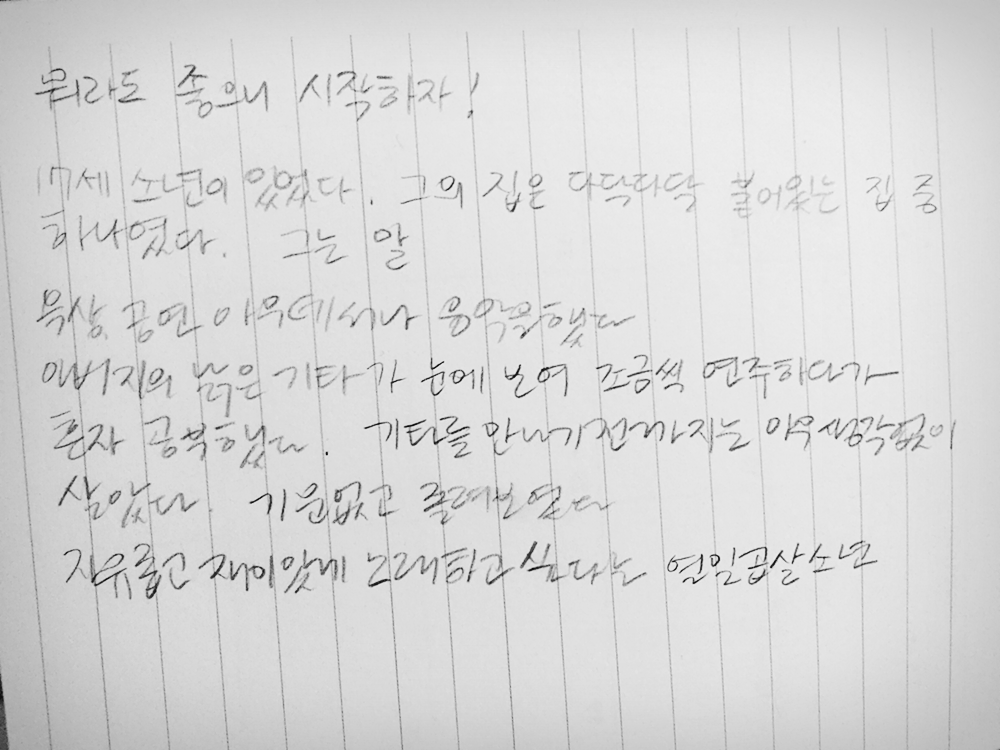 뭐라도 좋으니 시작하자!
17세 소년이 있었다. 그의 집은 다닥다닥 붙어있는 집 중
하나였다. 그는 말
묵상, 공연 아무데서나 음악을했다
아버지의 낡은 기타가 눈에 보여 조금씩 연주하다가
혼자 공부했다. 기타를 만나기전까지는 아무생각없이
살았다. 기운없고 졸려보였다
자유롭고 재미있게 노래하고 싶다는 열일곱살소년